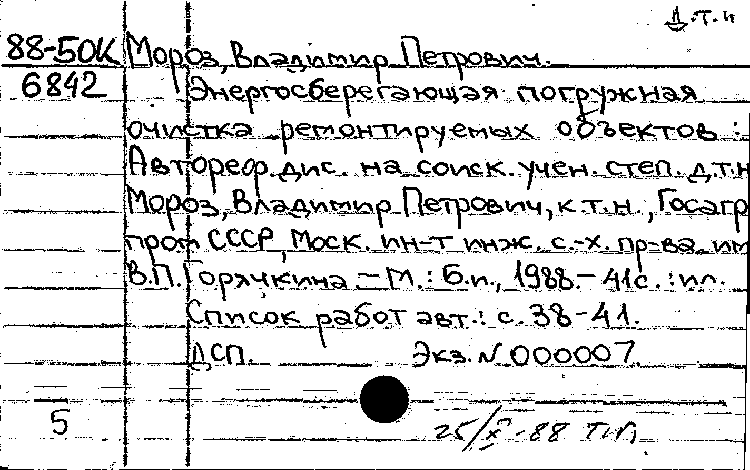 Д.Т.Н
88-50К Мороз, Владимир Петрович.
6842 Энергосберегающая погружная
очистка ремонтируемых объектов :
Автореф. дис. на соиск. учен. степ. д.т.н
Мороз, Владимир Петрович, к.т.н., Госагр
пром СССР, Моск. ин-т инж. с.-х. пр-ва им
В.П. Горячкина – М. : Б.и., 1988. – 41с. : ил.
Список работ авт.: с. 38-41.
ДСП. Экз. N 000007
5
25/X-88